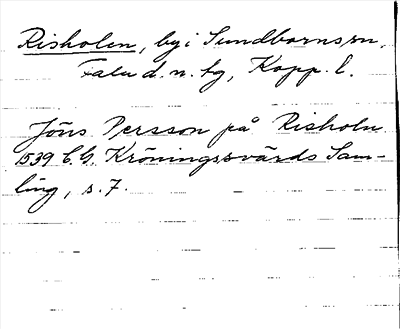 Risholen, by i Sundbornssn,
Falu d. n. tg, Kopp. l.
Jöns Persson på Risholn
1539 C. G. Kröningssvärds Sam-
ling, s. 7.